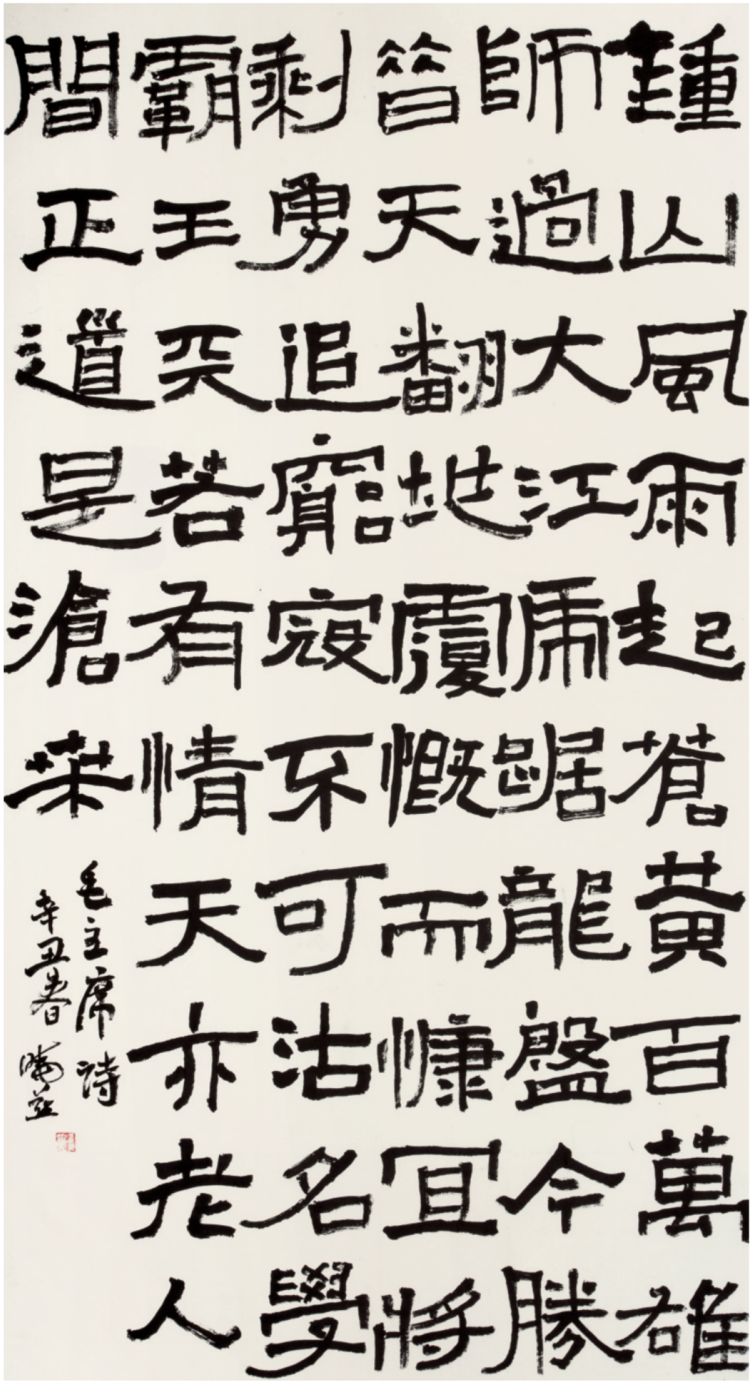 鍾山風雨起蒼黃百萬雄
師過大江虎踞龍盤今勝
昔天翻地覆慨而慷宜將
剩勇追窮寇不可沽名學
霸王天若有情天亦老人
間正道是滄桑
毛主席詩
辛丑春